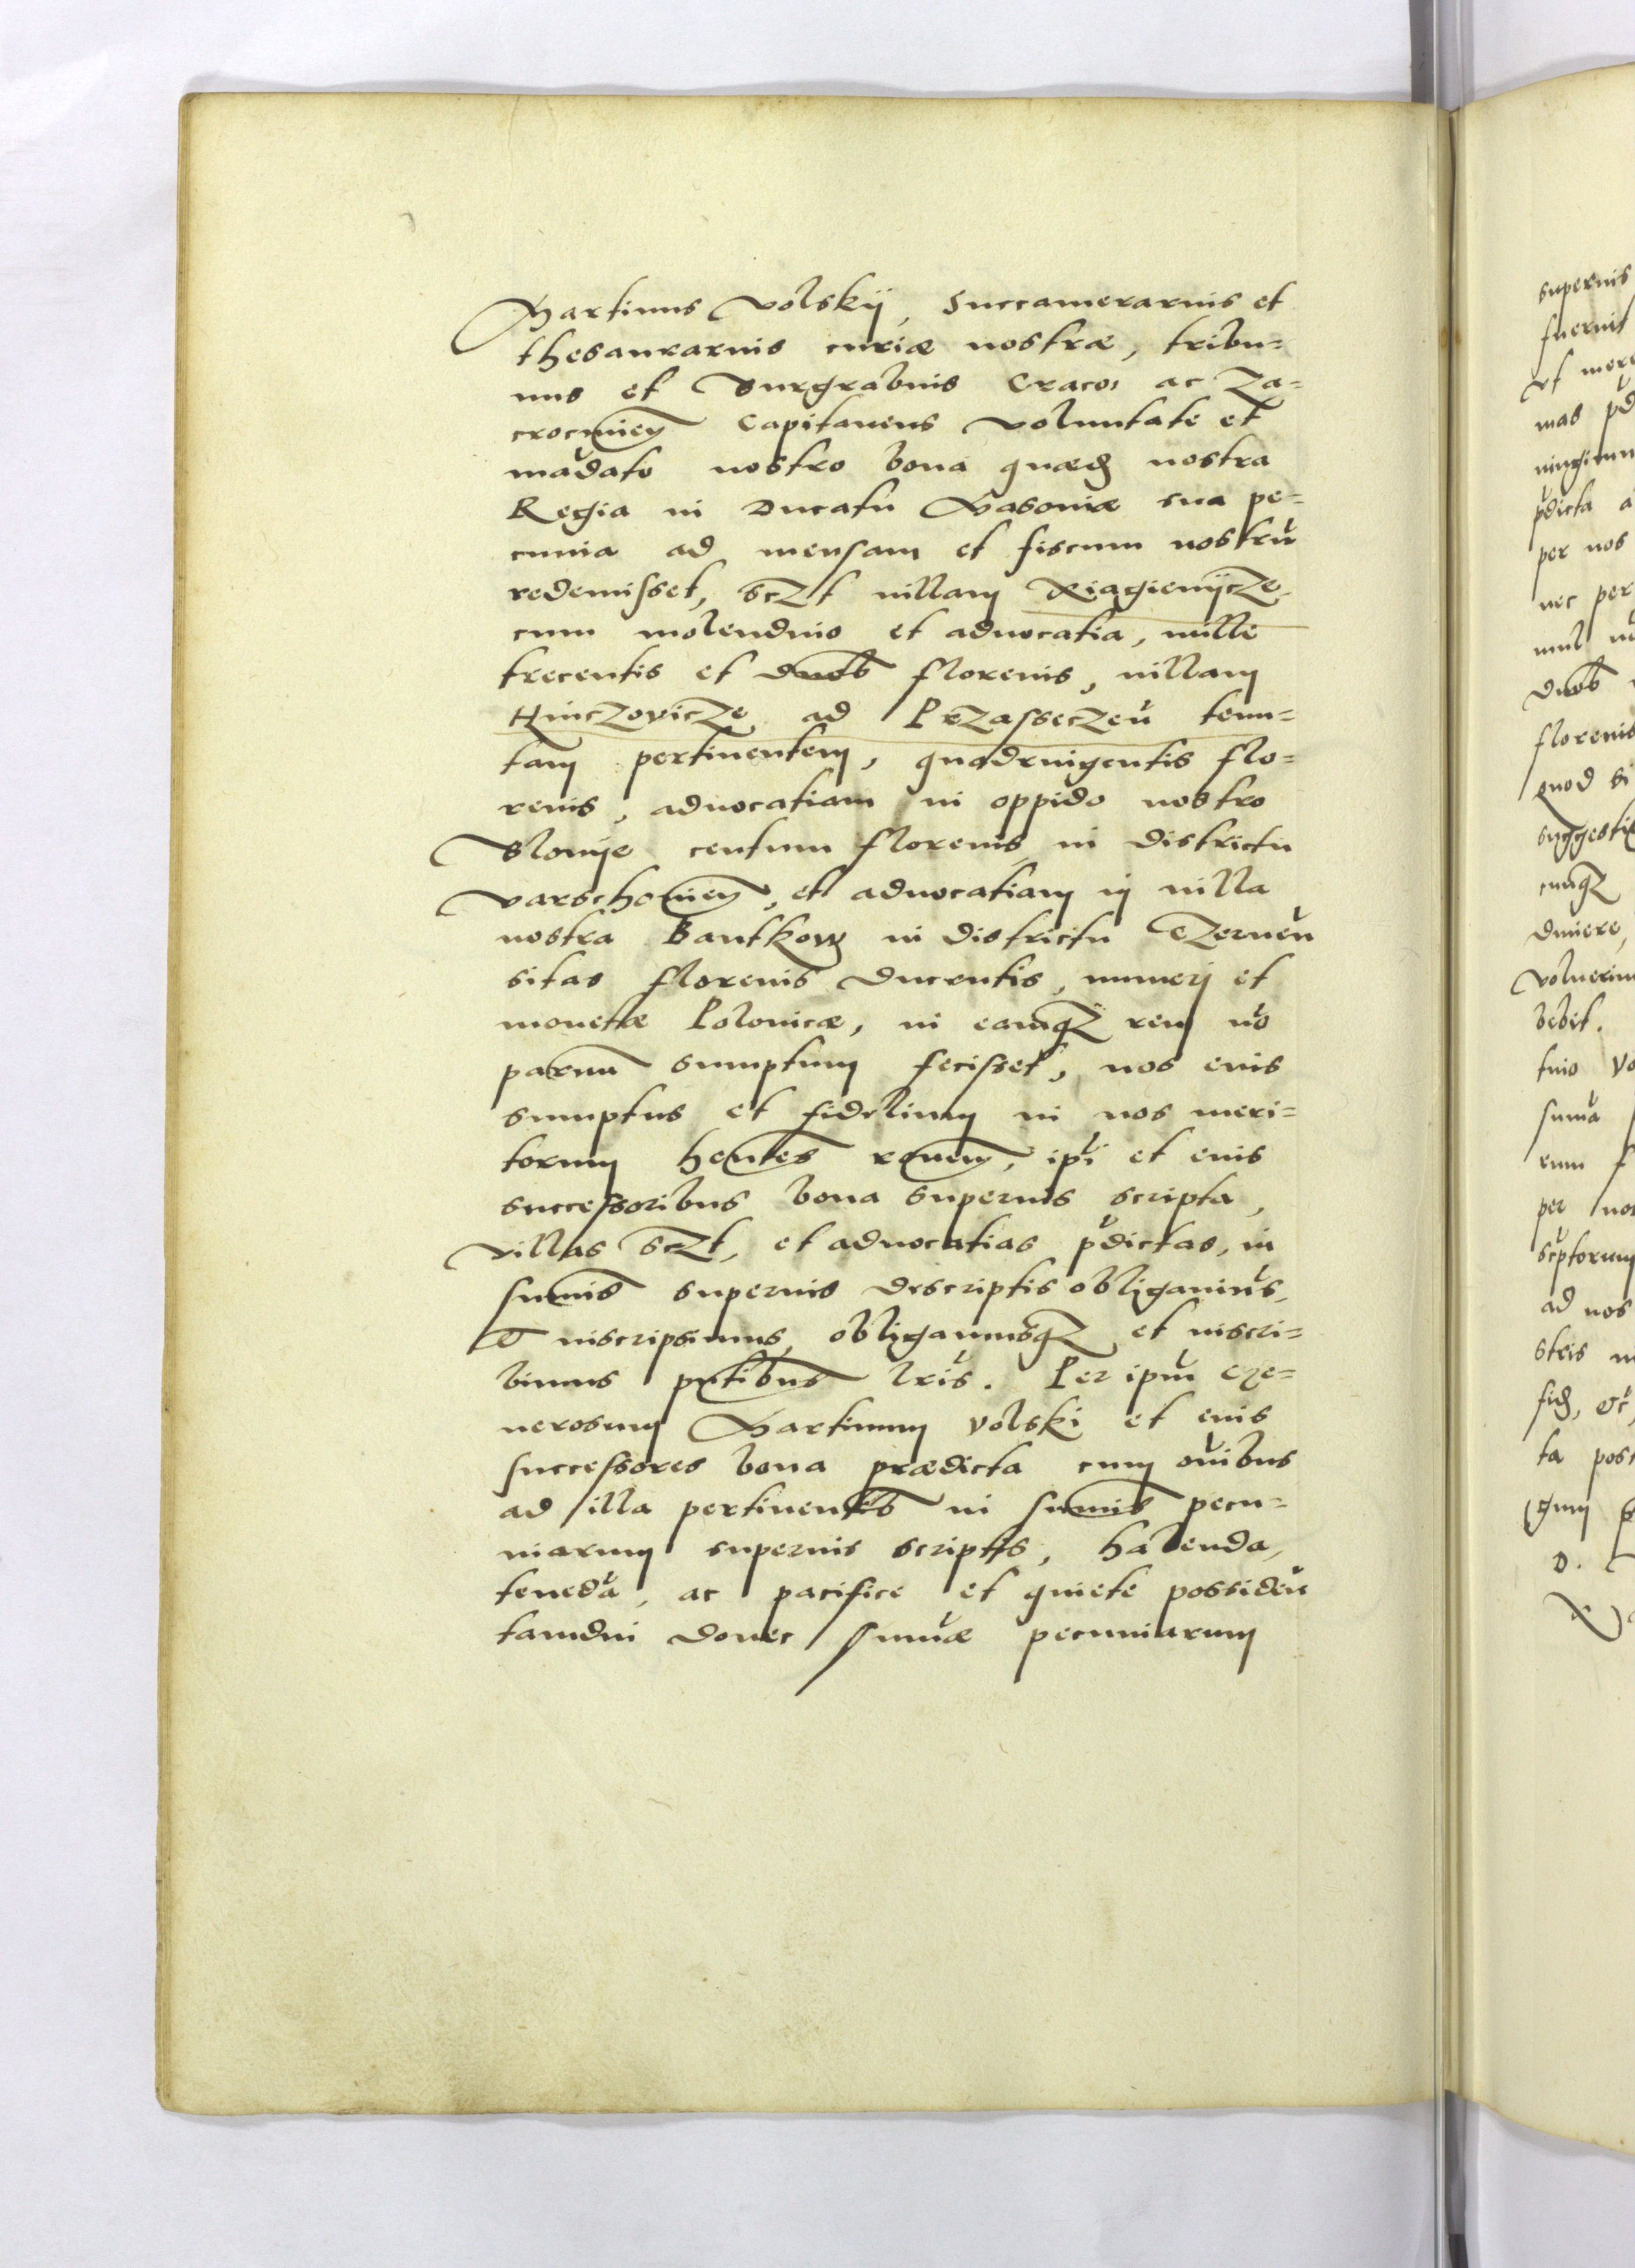 Martinus Volskÿ, Succamerarius et
thesaurarius curiæ nostræ, tribu=
nus et Burgrabius Craco: ac Za=
crocimieñ Capitaneus voluntate et
mādato nostro bona quæd nostra
Regia in Ducatu Masoviæ sua pe=
cunia ad mensam et fiscum nostrū
redemisset, sczt villam Xiagienÿcze
cum molendino et advocatia, mille
trecentis et duob florenis, villam
Hinczovicze ad Przasseczeñ tenu=
tam pertinentem, quadringentis flo=
renis, advocatiam in oppido nostro
Blonÿe centum florenis, in districtu
varschovieñ, et advocatiam in villa
nostra Bantkow in districtu Czerneñ
sitas florenis ducentis, numeri et
monettæ Polonicæ, in eamqz rem nō
parvum sumptum fecisset, nos eius
sumptus et fidelium in nos meri=
torum hentes roñem, ipī et eius
successoribus bona superius scripta,
villas sczt, et advocatias p̄dictas, in
summis superius descriptis obligavimus,
et inscripsimus, obligamusqz et inscri=
bimus pn̄tibus lr̄is. Per ipm̄ ge=
nerosum Martinum Volski et eius
successores bona prædicta cum om̄ibus
ad illa pertinentes in summis pecu=
niarum superius scriptis, habenda,
tenedā, ac pacifice et quiete possideñ
tamdiu donec sum̄æ pecuniarum
superius
fuerint
per nos
nec per
duob
florenis
quod si
dmiere,
per nos
ad nos
ta poss